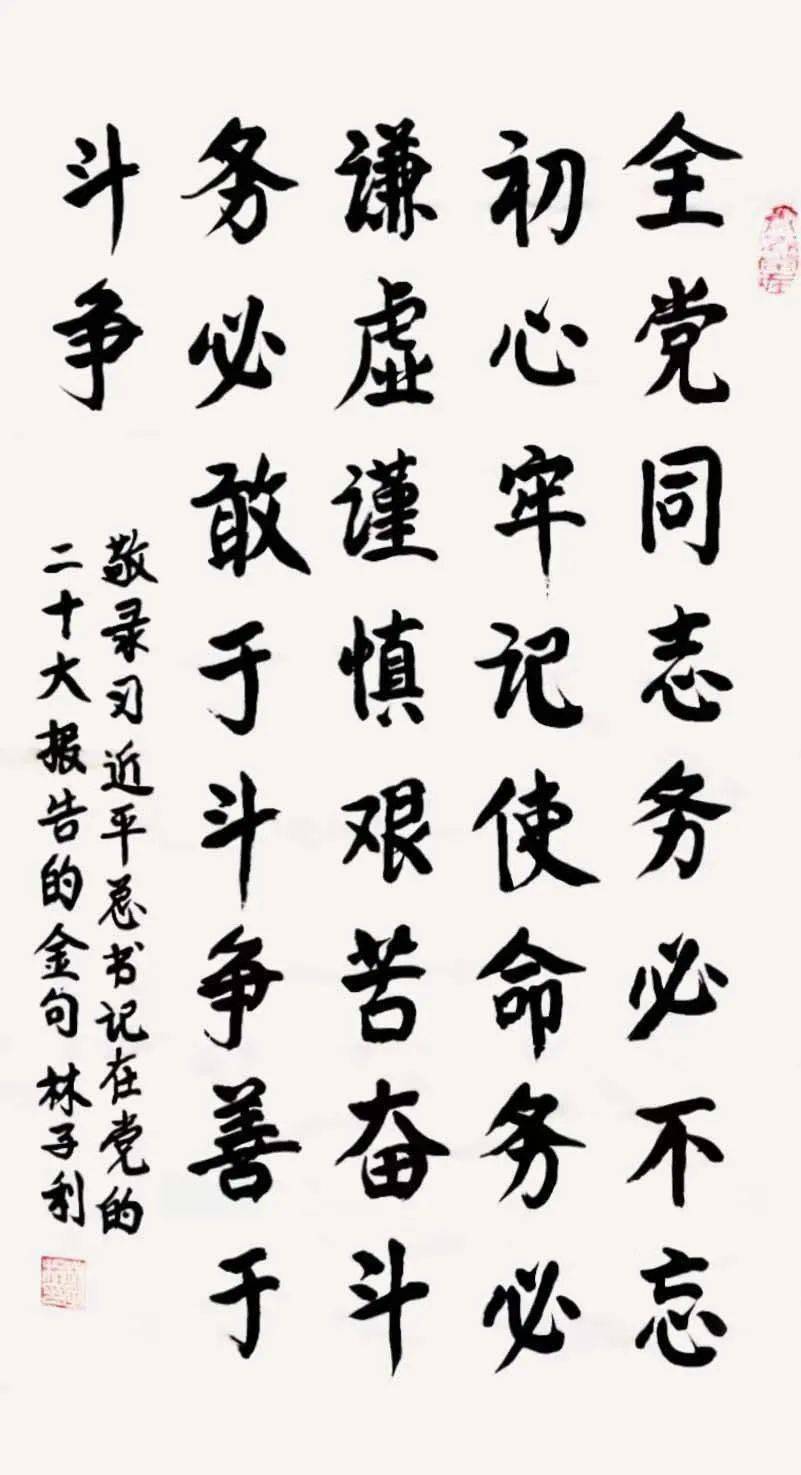 全党同志务必不忘
初心牢记使命务必
谦虚谨慎艰苦奋斗
务必敢于斗争善于
斗争
敬录习近平总书记在党的
二十大报告的金句 林子利